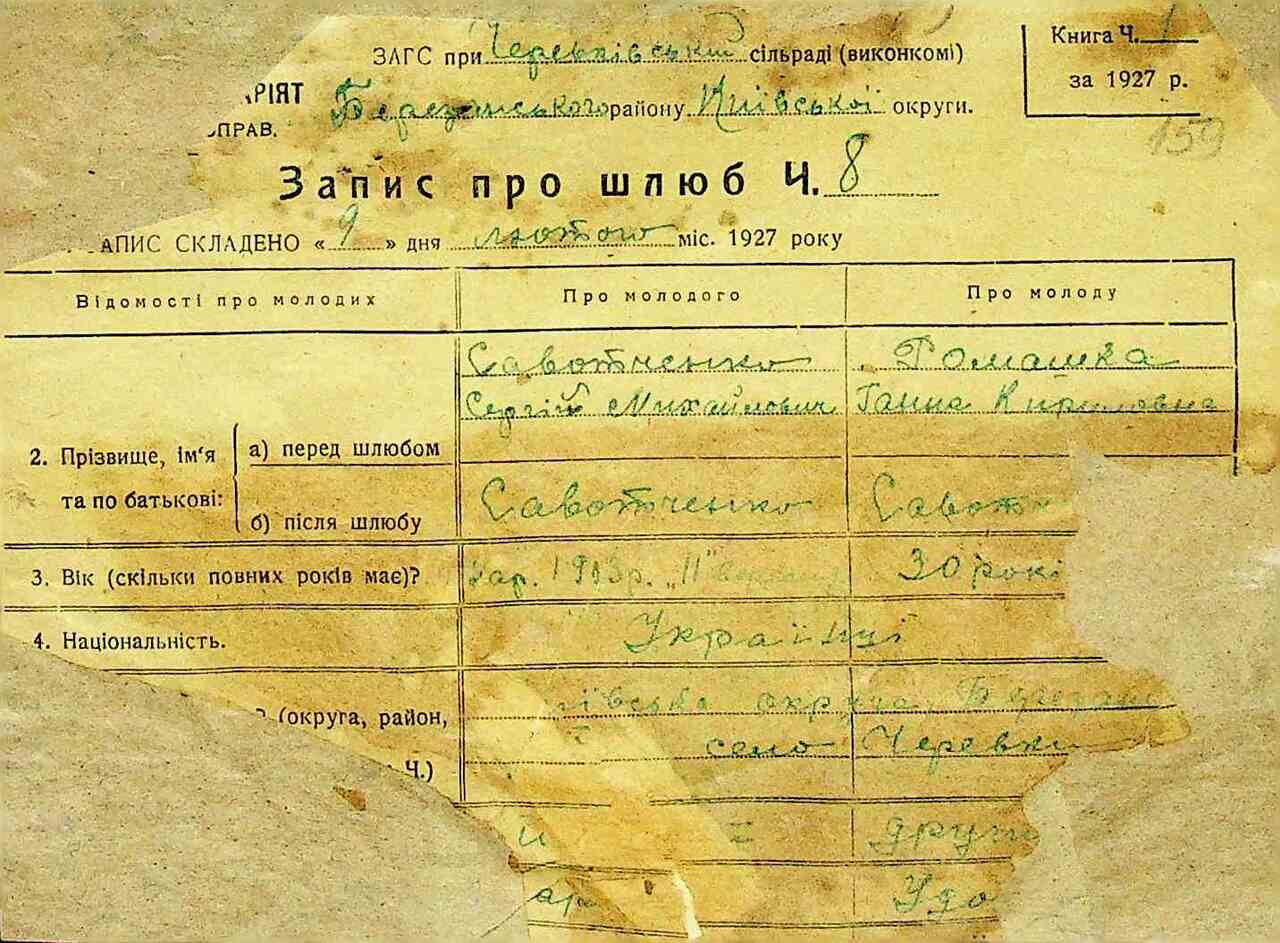 ЗАГС при Черевківській сільраді (виконкомі)
Книга Ч. 1
за 1927 р.
РІЯТ Березанського району Київської округи.
ПРАВ.
159
Запис про шлюб Ч. 8
АПИС СКЛАДЕНО « 9 » дня лютого міс. 1927 року
Відомості про молодих Про молодого Про молоду
Савотченко Ромашка
Сергій Михайлович Ганна Кириловна
2. Прізвище, ім'я та по батькові:
а) перед шлюбом
б) після шлюбу Савотченко Савотч
3. Вік (скільки повних років має)? 1903р. „11" 30 рокі
4. Національність. Українці
(округа, район, ївська округа Березан
село Черевки
Ч.)
друг
Удо